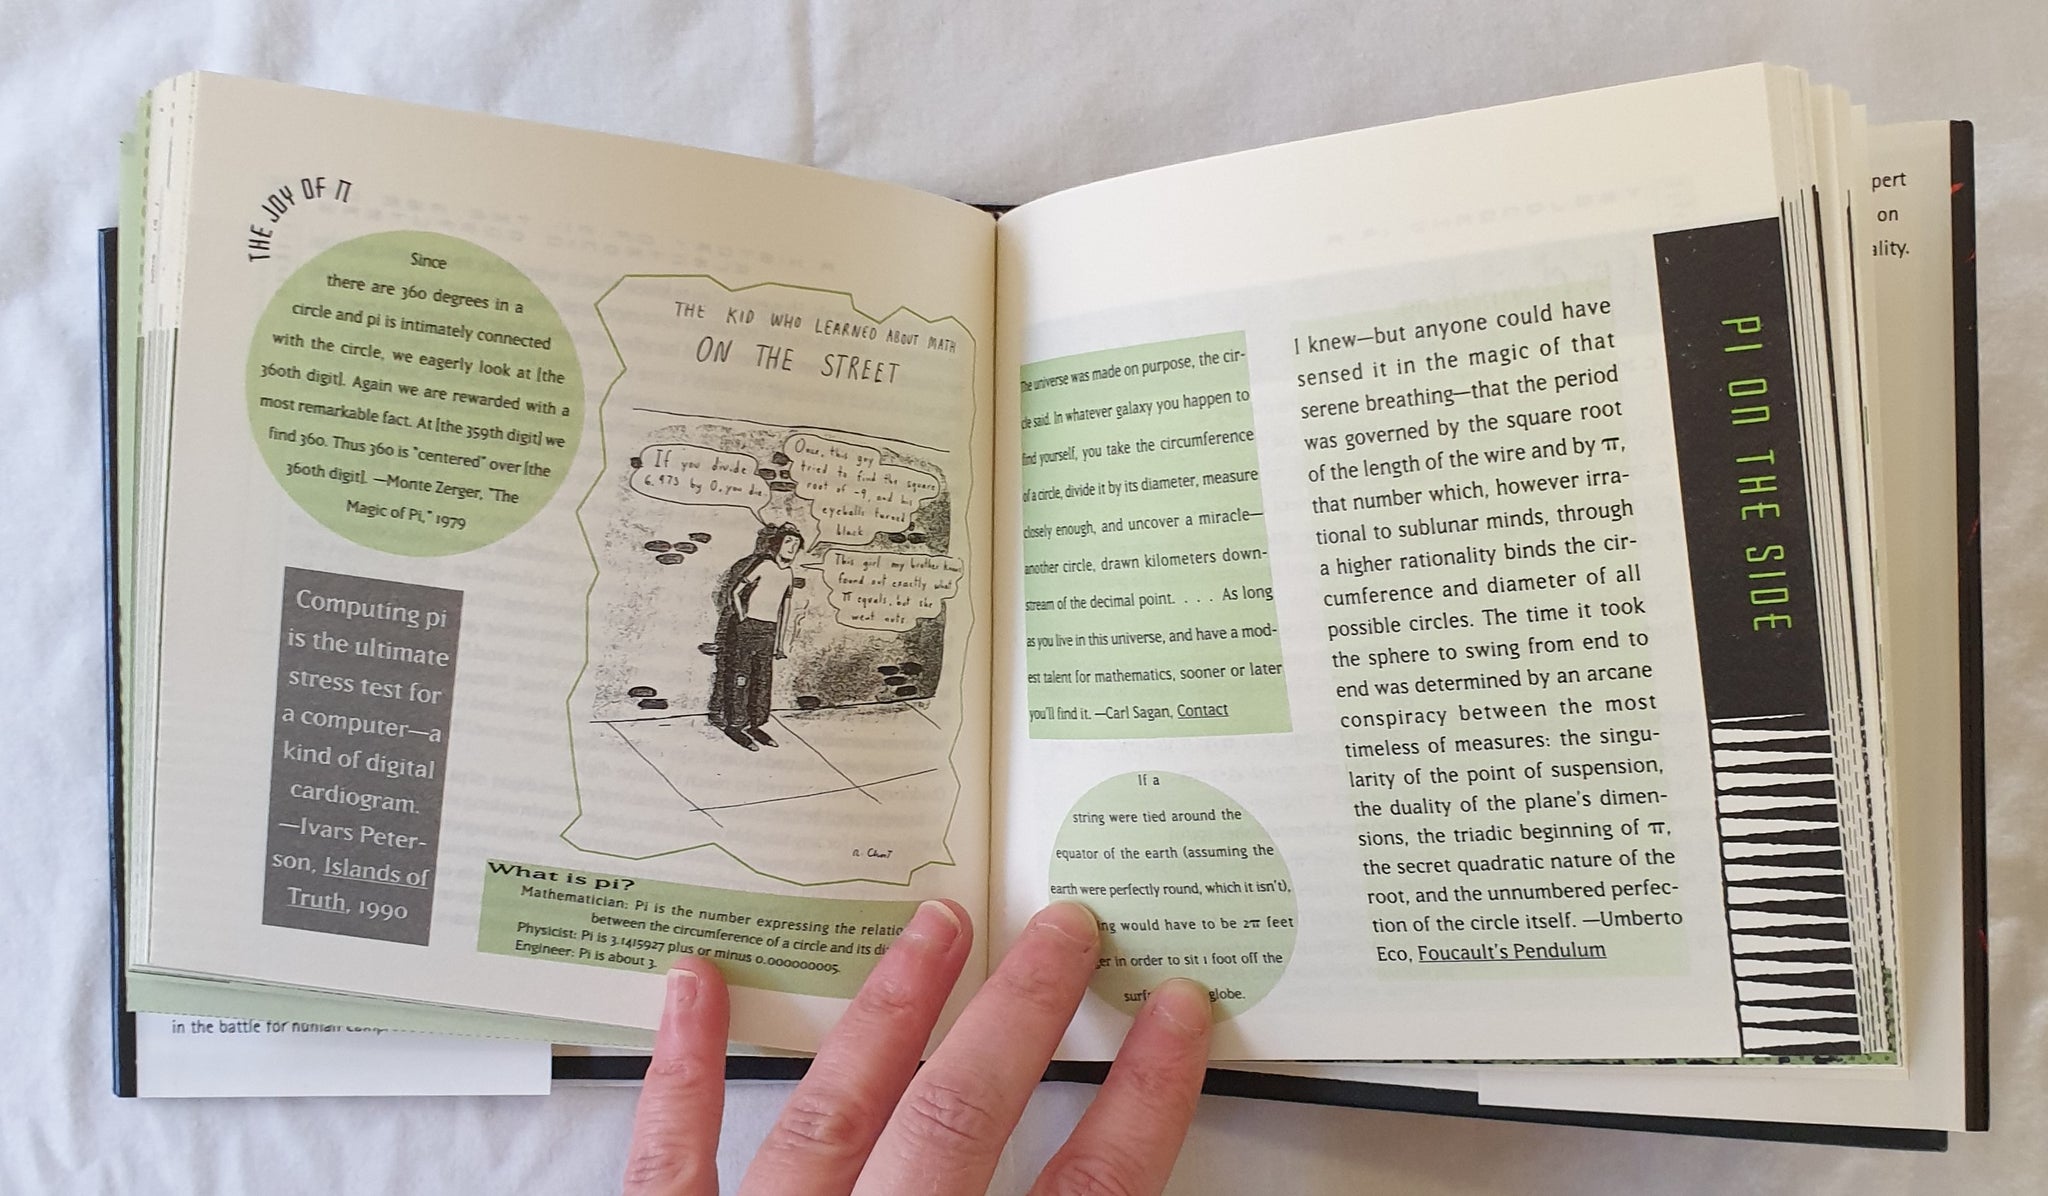 THE JOY OF Π
Since
there are 360 degrees in a
circle and pi is intimately connected
with the circle, we eagerly look at [the
360th digit]. Again we are rewarded with a
most remarkable fact. At [the 359th digit] we
find 360. Thus 360 is "centered" over [the
360th digit]. —Monte Zerger, "The
Magic of Pi," 1979
Computing pi
is the ultimate
stress test for
a computer—a
kind of digital
cardiogram.
—Ivars Peter-
son, Islands of
Truth, 1990
THE KID WHO LEARNED ABOUT MATH
ON THE STREET
If you divide
6.973 by 0, you die.
Once, this guy
tried to find the square
root of -9, and his
eyeballs turned
black
This girl my brother knows
found out exactly what
π equals, but she
went nuts.
R. Chast
What is pi?
Mathematician: Pi is the number expressing the
between the circumference of a circle and its
Physicist: Pi is 3.1415927 plus or minus 0.000000005.
Engineer: Pi is about 3.
in the battle for human
The universe was made on purpose, the cir-
cle said. In whatever galaxy you happen to
find yourself, you take the circumference
of a circle, divide it by its diameter, measure
closely enough, and uncover a miracle—
another circle, drawn kilometers down-
stream of the decimal point. . . . As long
as you live in this universe, and have a mod-
est talent for mathematics, sooner or later
you'll find it. —Carl Sagan, Contact
If a
string were tied around the
equator of the earth (assuming the
earth were perfectly round, which it isn't),
would have to be 2π feet
in order to sit 1 foot off the
globe.
I knew—but anyone could have
sensed it in the magic of that
serene breathing—that the period
was governed by the square root
of the length of the wire and by π,
that number which, however irra-
tional to sublunar minds, through
a higher rationality binds the cir-
cumference and diameter of all
possible circles. The time it took
the sphere to swing from end to
end was determined by an arcane
conspiracy between the most
timeless of measures: the singu-
larity of the point of suspension,
the duality of the plane's dimen-
sions, the triadic beginning of π,
the secret quadratic nature of the
root, and the unnumbered perfec-
tion of the circle itself. —Umberto
Eco, Foucault's Pendulum
PI ON THE SIDE
pert
on
ality.